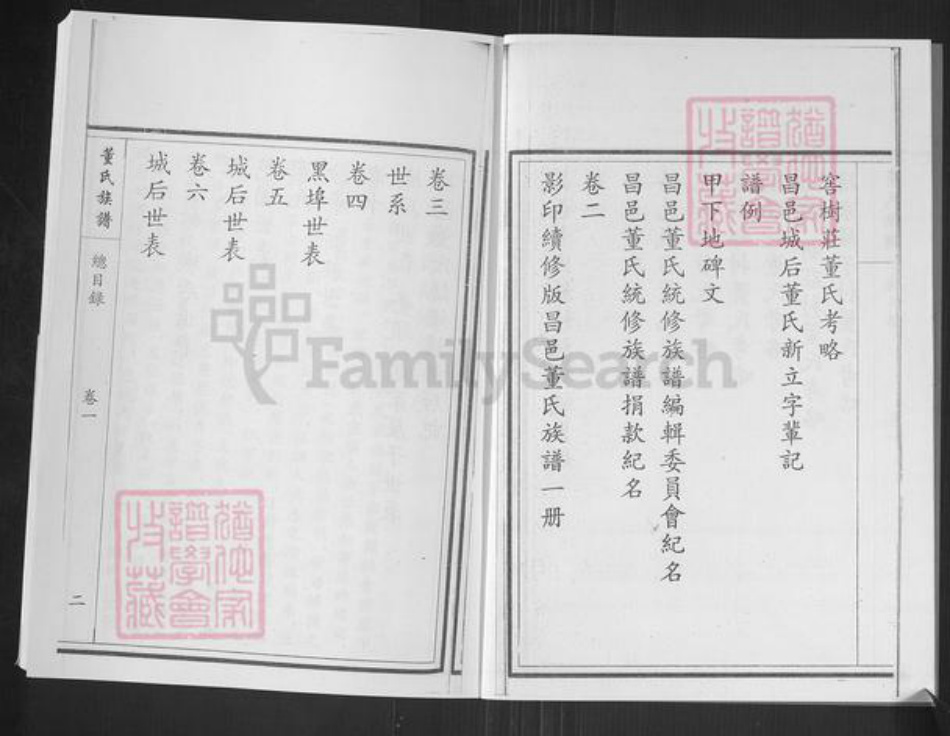 窖樹莊董氏考略
昌邑城后董氏新立字輩記
譜例
甲下地碑文
昌邑董氏統修族譜編輯委員會紀名
昌邑董氏統修族譜捐款紀名
卷二
影印續修版昌邑董氏族譜一册
卷三
世系
卷四
黑埠世表
卷五
城后世表
卷六
城后世表
董氏族譜
總目錄
卷一
二
FamilySearch